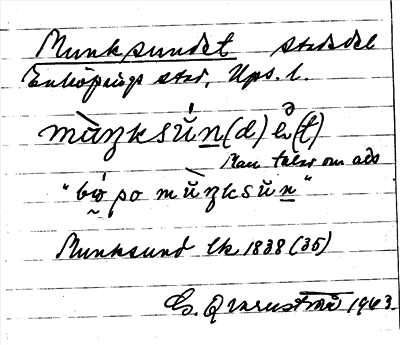 Munksundet stadsdel
Enköpings stad, Ups. l.
Man talar om
"bo po muŋksun"
Munksund Ek 1838 (35)
G. Qvarnström 1963.